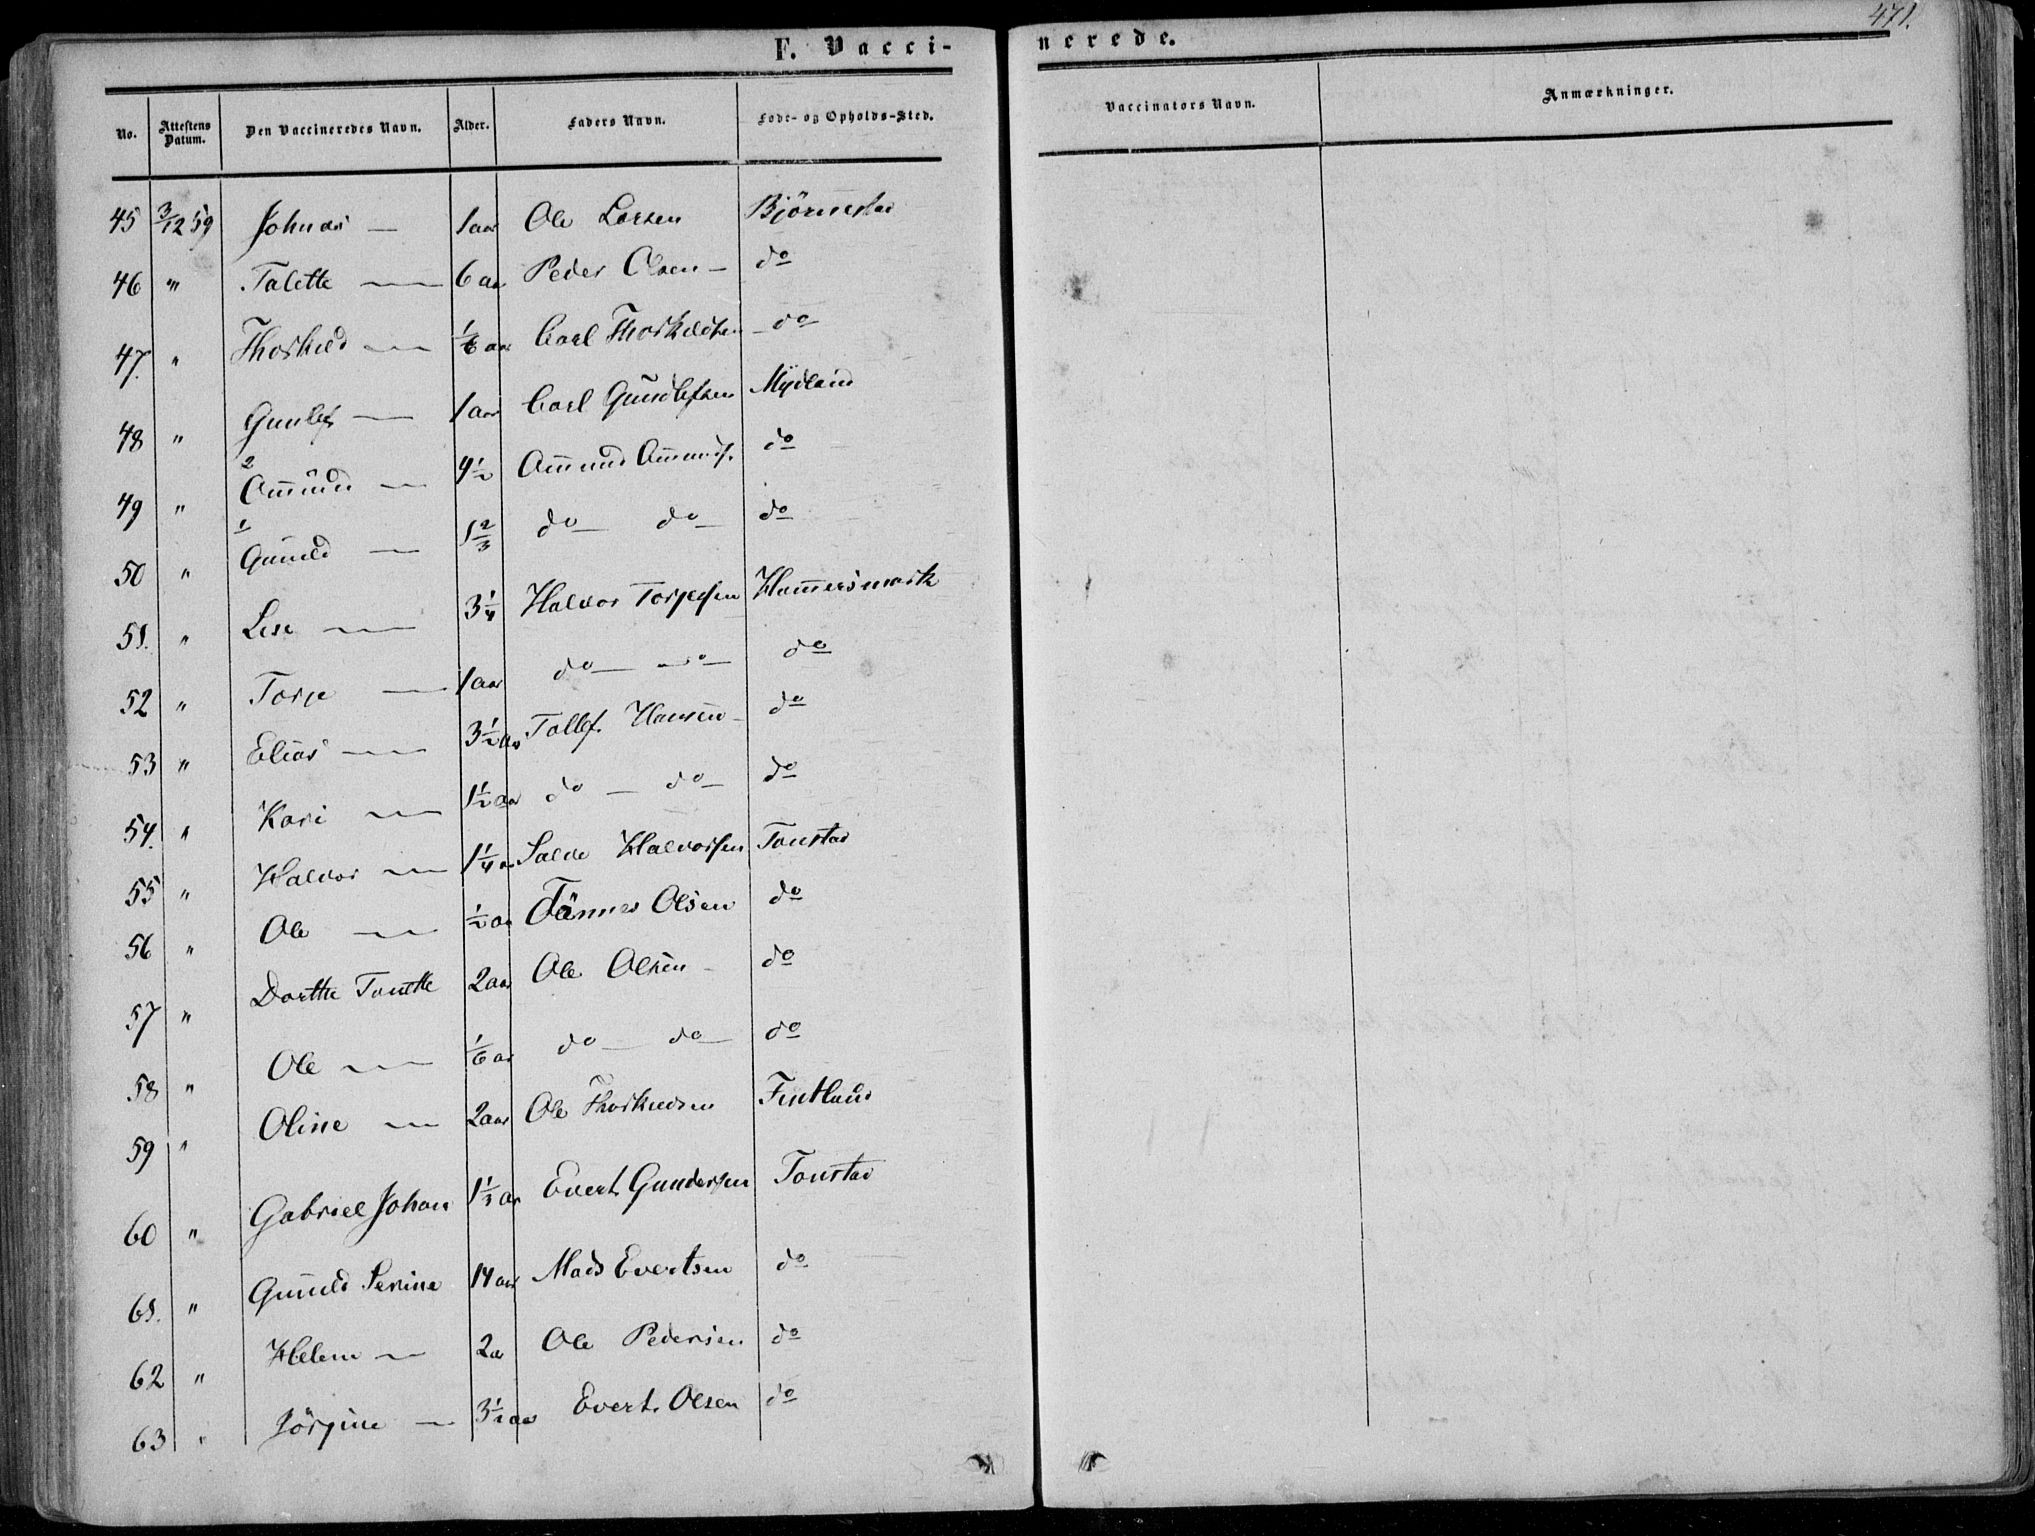 471.
F. Vacci-nerede.
No. Attestens Datum. Den Vaccineredes Navn. Alder. Faders Navn. Føde- og Opholds-Sted. Vaccinators Navn. Anmærkninger.
45 3/12 59 Johnas — 1 aar Ole Larsen Björnestad
46 " Talette — 6 aar Peder Olsen — do
47. " Thorkild — 1/6 aar Carl Thorkildsen — do
48 " Gunlef — 1 aar Carl Gundlefsen Mydland
49 " 2 Ommund — 4 1/2 Ommund Ommunds. do
50 " 1 Gunild — 1 2/3 do — do — do
51. " Lise — 3 1/4 Halvor Torjesen Hammersmark
52 " Torje — 1 aar do — do — do
53 " Elias — 3 1/2 aar Tollef Hansen — do
54. " Kari — 1 1/2 aar do — do — do
55 " Halvor — 1 1/4 aar Salve Halvorsen Tonstad
56 " Ole — 1/2 aar Tönnes Olsen do
57 " Dorthe Tonette 2 aar Ole Olsen — do
58 " Ole — 1/6 aar do — do — do
59 " Oline — 2 aar Ole Thorkildsen Fintland
60 " Gabriel Johan 1 1/3 aar Evert Gundersen Tonstad
61. " Gunild Serine 14 aar Mads Evertsen do
62 " Helene — 2 a Ole Pedersen do
63 " Jörgine — 3 1/2 aar Evert Olsen do